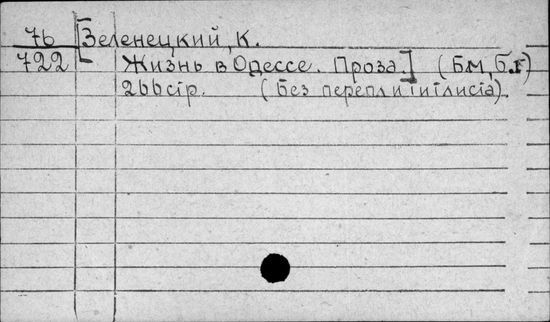 76 [Зеленецкий, К.
722 Жизнь в Одессе. Проза.] (Бм, б.г)
266стр. (Без перепл и титлиста).